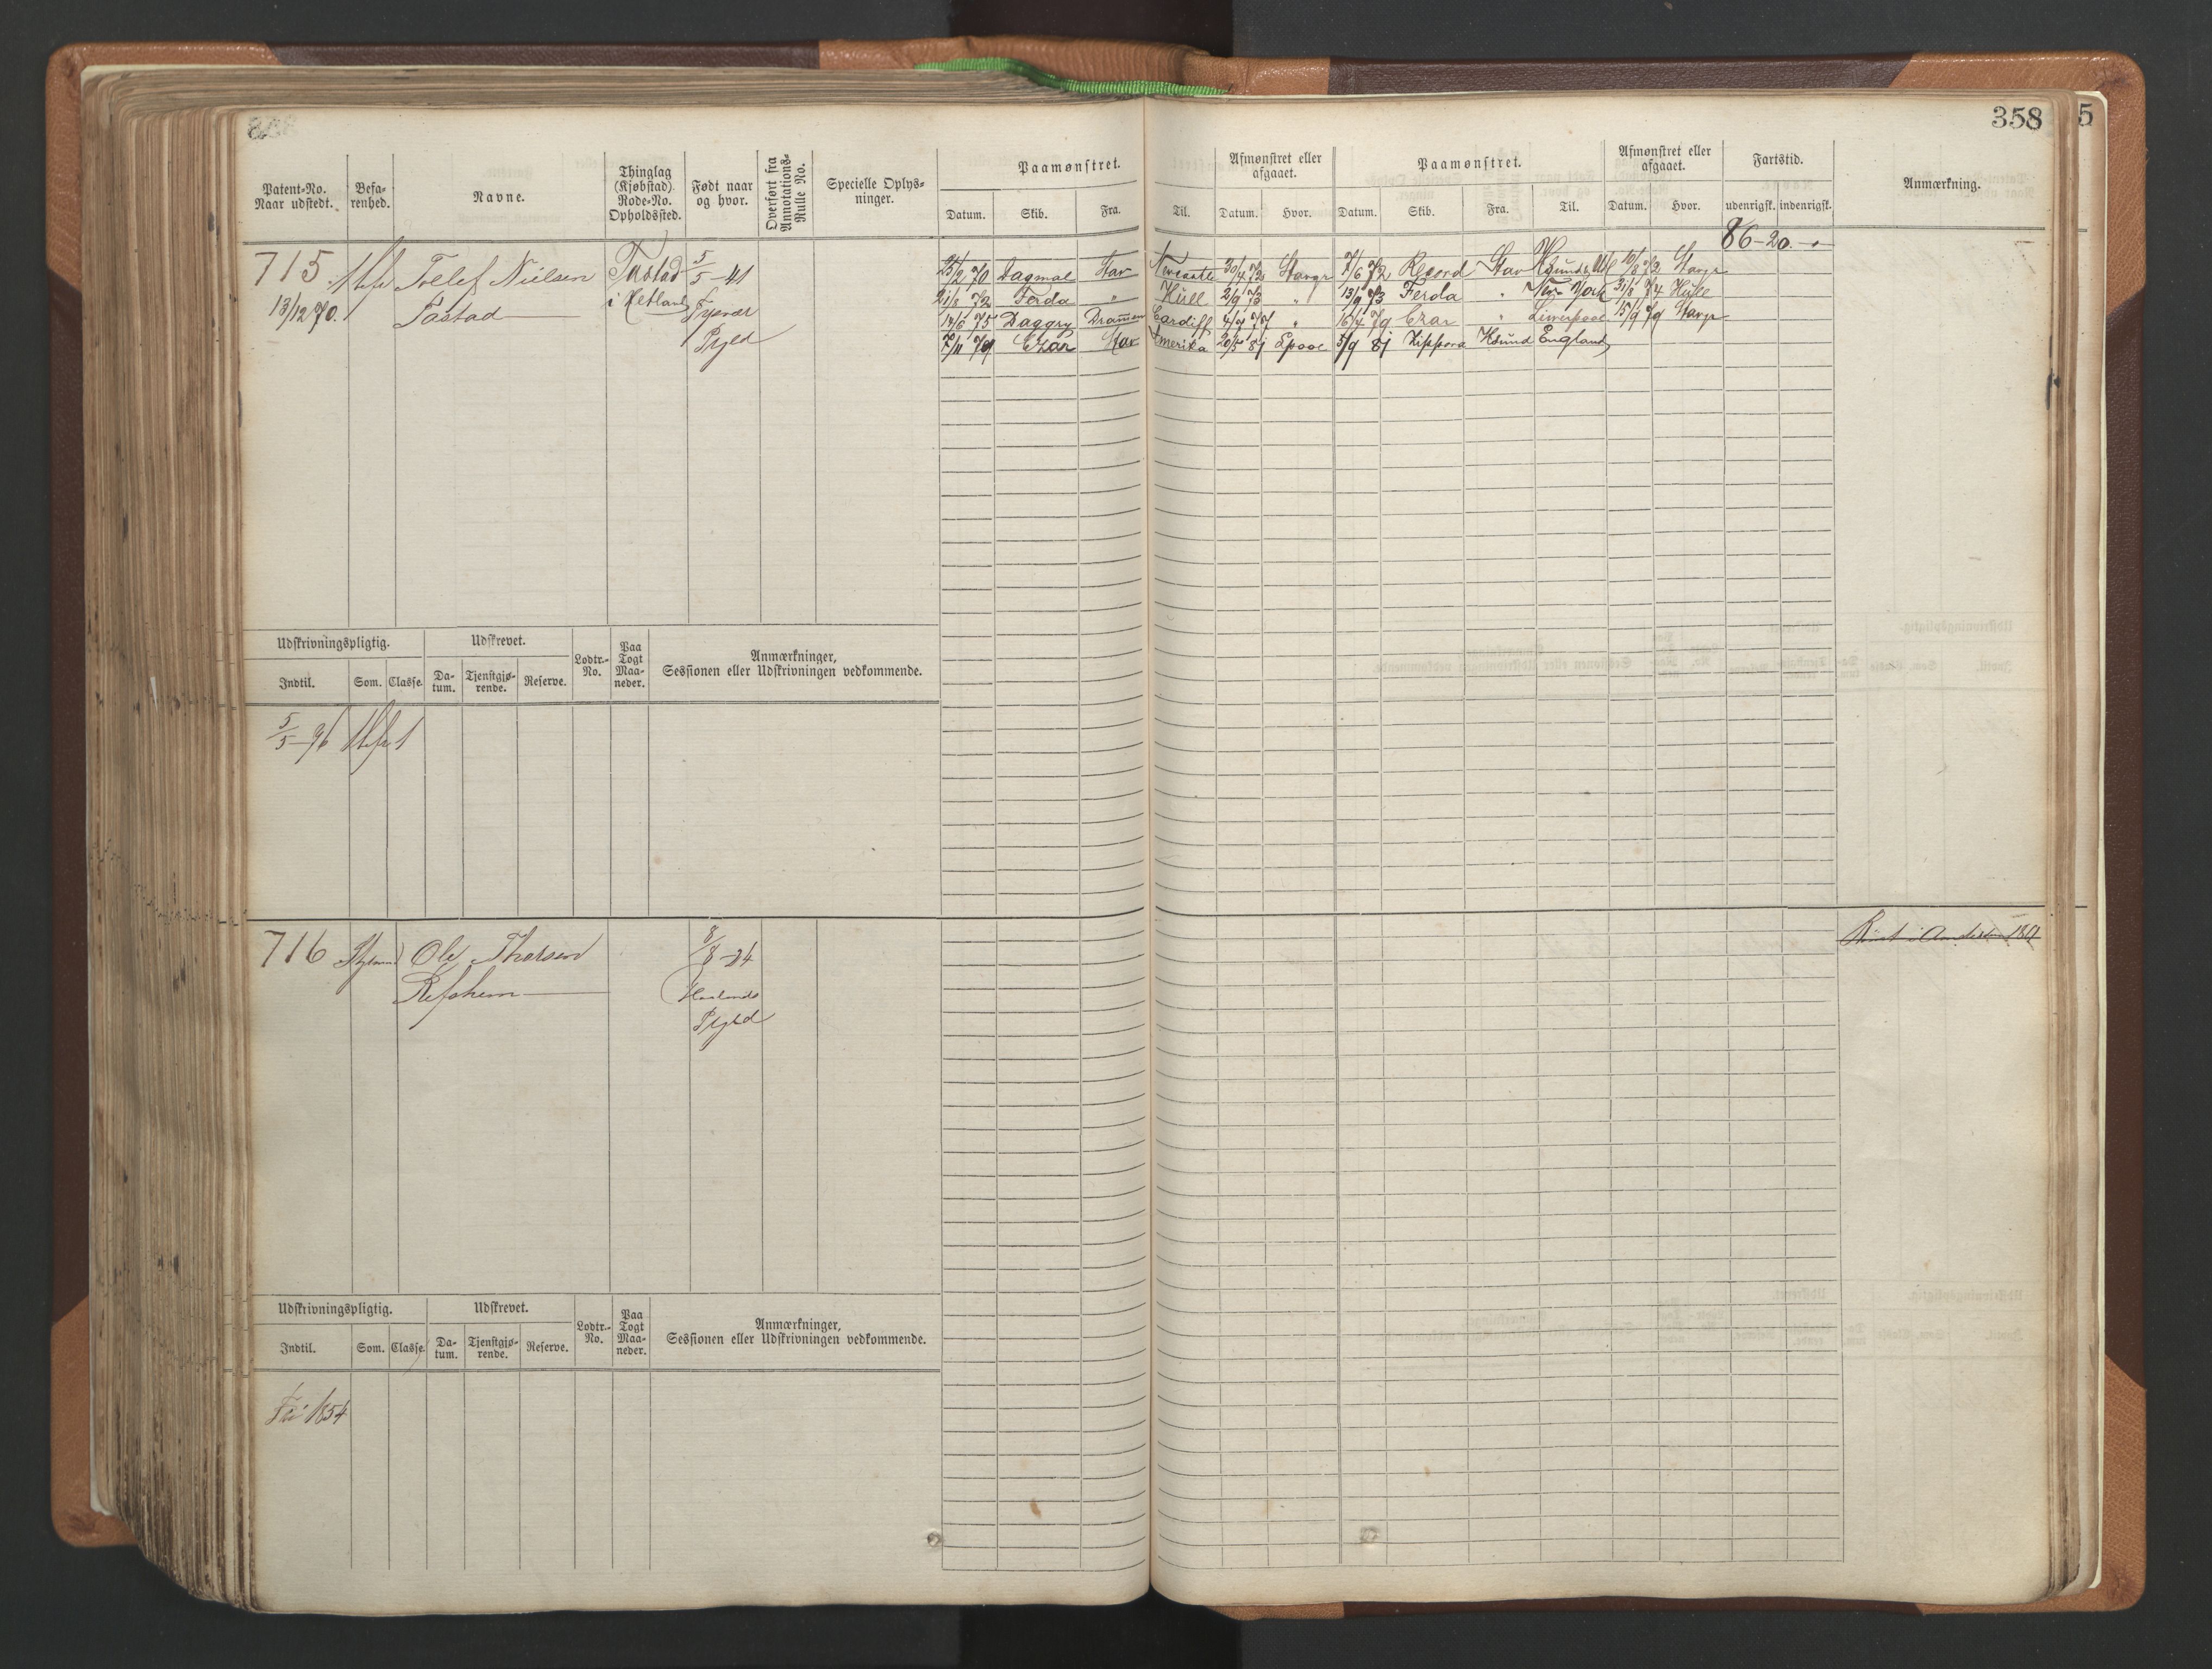 358
5
Patent-No. Naar udstedt.
Befa-renhed.
Navne.
Thinglag (Kjøbstad). Rode-No. Opholdssted.
Født naar og hvor.
Overført fra Annotations-Rulle No.
Specielle Oplys-ninger.
Paamønstret.
Datum. Skib. Fra. Til.
Afmønstret eller afgaaet.
Datum. Hvor.
Paamønstret.
Datum. Skib. Fra. Til.
Afmønstret eller afgaaet.
Datum. Hvor.
Fartstid.
udenrigsk. indenrigsk.
Anmærkning.
86-20-"
715 Tollef Nielsen Tastad 5/5-41
13/12 70. Tastad i Hetland Tysvær
Prgld
/2 70 Dagmal Stav Newcastle 30/4 72 Stavgr 7/6 72 Record Stav 10/8 72 Stavgr
21/8 72 Ferda " Hull 2/9 73 " 13/9 73 Ferda " New York 31/8 74 Hull
/6 75 Daggry Drammen Cardiff 4/9 77 " 16/4 79 Czar " Liverpool 15/9 79 Stavgr
7/11 79 Czar Stav Amerika 20/5 81 Lpool 5/9 81 Zippora Hsund England
Udskrivningspligtig. Udskrevet. Lodtr.-No. Paa Togt Maa-neder. Anmærkninger, Sessionen eller Udskrivningen vedkommende.
Indtil. Som. Classe. Da-tum. Tjenstgjø-rende. Reserve.
5/5-96 1
716 Ole Thorsen 8/8-24
Refshem
Prgld
Udskrivningspligtig. Udskrevet. Lodtr.-No. Paa Togt Maa-neder. Anmærkninger, Sessionen eller Udskrivningen vedkommende.
Indtil. Som. Classe. Da-tum. Tjenstgjø-rende. Reserve.
Fri 1854